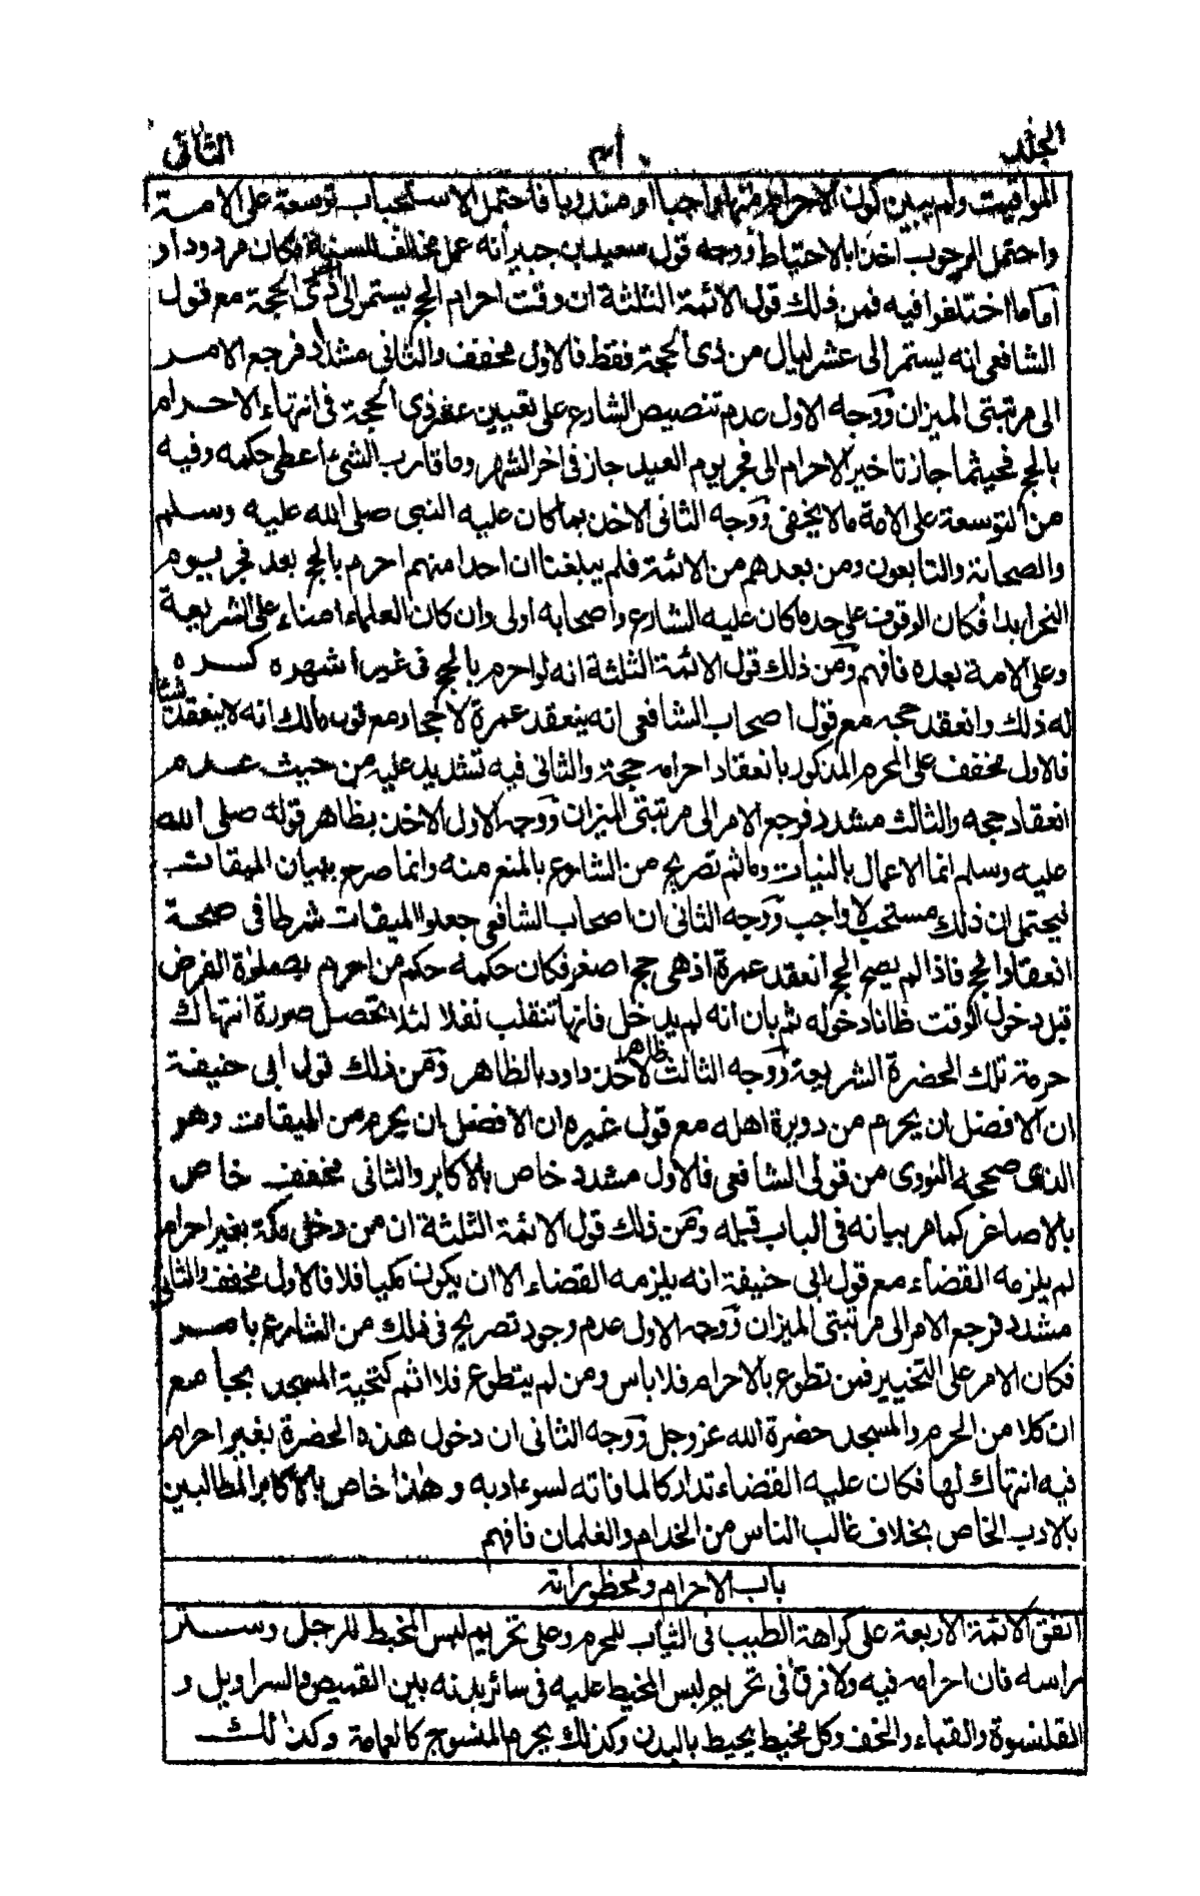 الجلد ٣٠ الثانى
المواقيت ولم يبين كون الاحرام منها واجبا او مندوبا فاحتمل الاستحباب توسعة على الامة
واحتمل الوجوب اخذا بالاحتياط ووجه قول سعيد بن جبير أنه عمل مخالف للسنة فكان مردودا و
أما ما اختلفوا فيه فمن ذلك قول الائمة الثلثة ان وقت احرام الحج يستمر الى اخر ذى الحجة مع قول
الشافعى انه يستمر الى عشر ليال من ذى الحجة فقط فالاول مخفف والثانى مشدد فرجع الامر
الى مرتبتى الميزان ووجه الاول عدم تنصيص الشارع على تعيين عشر ذى الحجة فى انتهاء الاحرام
بالحج فحيثما جاز تاخير الاحرام الى فجر يوم العيد جاز فى اخر الشهر وما قارب الشئ اعطى حكمه وفيه
من التوسعة على الامة مالا يخفى ووجه الثانى الاخذ بما كان عليه النبى صلى الله عليه وسلم
والصحابة والتابعون ومن بعدهم من الائمة فلم يبلغنا ان احدا منهم احرم بالحج بعد فجر يوم
النحر ابدا فكان الوقوف على حد ما كان عليه الشارع واصحابه أولى وان كان العلماء امناء على الشريعة
وعلى الامة بعده فافهم ومن ذلك قول الائمة الثلثة انه لو احرم بالحج فى غير اشهره كره
له ذلك وانعقد حجه مع قول اصحاب الشافعى انه ينعقد عمرة لا حجا ومع قول مالك انه لا ينعقد شيئا
فالاول مخفف على المحرم المذكور بانعقاد احرامه حجة والثانى فيه تشديد عليه من حيث عدم
انعقاد حجه والثالث مشدد فرجع الامر الى مرتبتى الميزان ووجه الاول الاخذ بظاهر قوله صلى الله
عليه وسلم انما الاعمال بالنيات وما ثم تصريح من الشارع بالمنع منه وانما صرح ببيان الميقات
فيحتمل ان ذلك مستحب لا واجب ووجه الثانى ان اصحاب الشافعى جعلوا الميقات شرطا فى صحة
انعقاد الحج فاذا لم يصح الحج انعقد عمرة اذ هى حج اصغر فكان حكمه حكم من احرم بصلوة الفرض
قبل دخول الوقت ظانا دخوله ثم بان انه لم يدخل فانها تنقلب نفلا لئلا تحصل صورة انتهاك
حرمة تلك الحضرة الشريعة ووجه الثالث الاخذ ظاهر داود بالظاهر ومن ذلك قول ابى حنيفة
ان الافضل ان يحرم من دويرة اهله مع قول غيره ان الافضل ان يحرم من الميقات وهو
الذى صححه النووى من قولى الشافعى فالاول مشدد خاص بالاكابر والثانى مخفف خاص
بالاصاغر كما مر بيانه فى الباب قبله ومن ذلك قول الائمة الثلثة ان من دخل مكة بغير احرام
لم يلزمه القضاء مع قول ابى حنيفة انه يلزمه القضاء الا ان يكون مكيا فلا فالاول مخفف والثانى
مشدد فرجع الامر الى مرتبتى الميزان ووجه الاول عدم وجود تصريح فى ذلك من الشارع بامر
فكان الامر على التخيير فمن تطوع بالاحرام فلا باس ومن لم يتطوع فلا اثم كتحية المسجد بجامع
ان كلا من الحرم والمسجد حضرة الله عز وجل ووجه الثانى ان دخول هذه الحضرة بغير احرام
فيه انتهاك لها فكان عليه القضاء تداركا لما فاته لسوء ادبه وهذا خاص بالاكابر المطالبين
بالادب الخاص بخلاف غالب الناس من الخدام والغلمان فافهم
باب الاحرام ومحظوراته
اتفق الائمة الاربعة على كراهة الطيب فى الثياب للمحرم وعلى تحريم لبس المخيط للرجل وستر
راسه فان احرامه فيه ولا فرق فى تحريم لبس المخيط عليه فى سائر بدنه بين القميص والسراويل و
القلنسوة والقباء والخف وكل مخيط يحيط بالبدن وكذلك يحرم المنسوج كالعمامة وكذلك